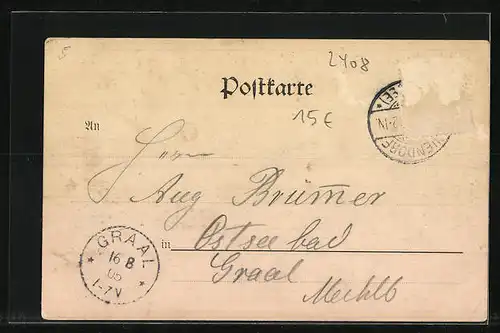 5
2408
Postkarte
15€
An
Herrn
Aug Brümer
in Ostseebad
Graal
Mecklb
GRAAL
16 8
05
1-7V
ENDORF